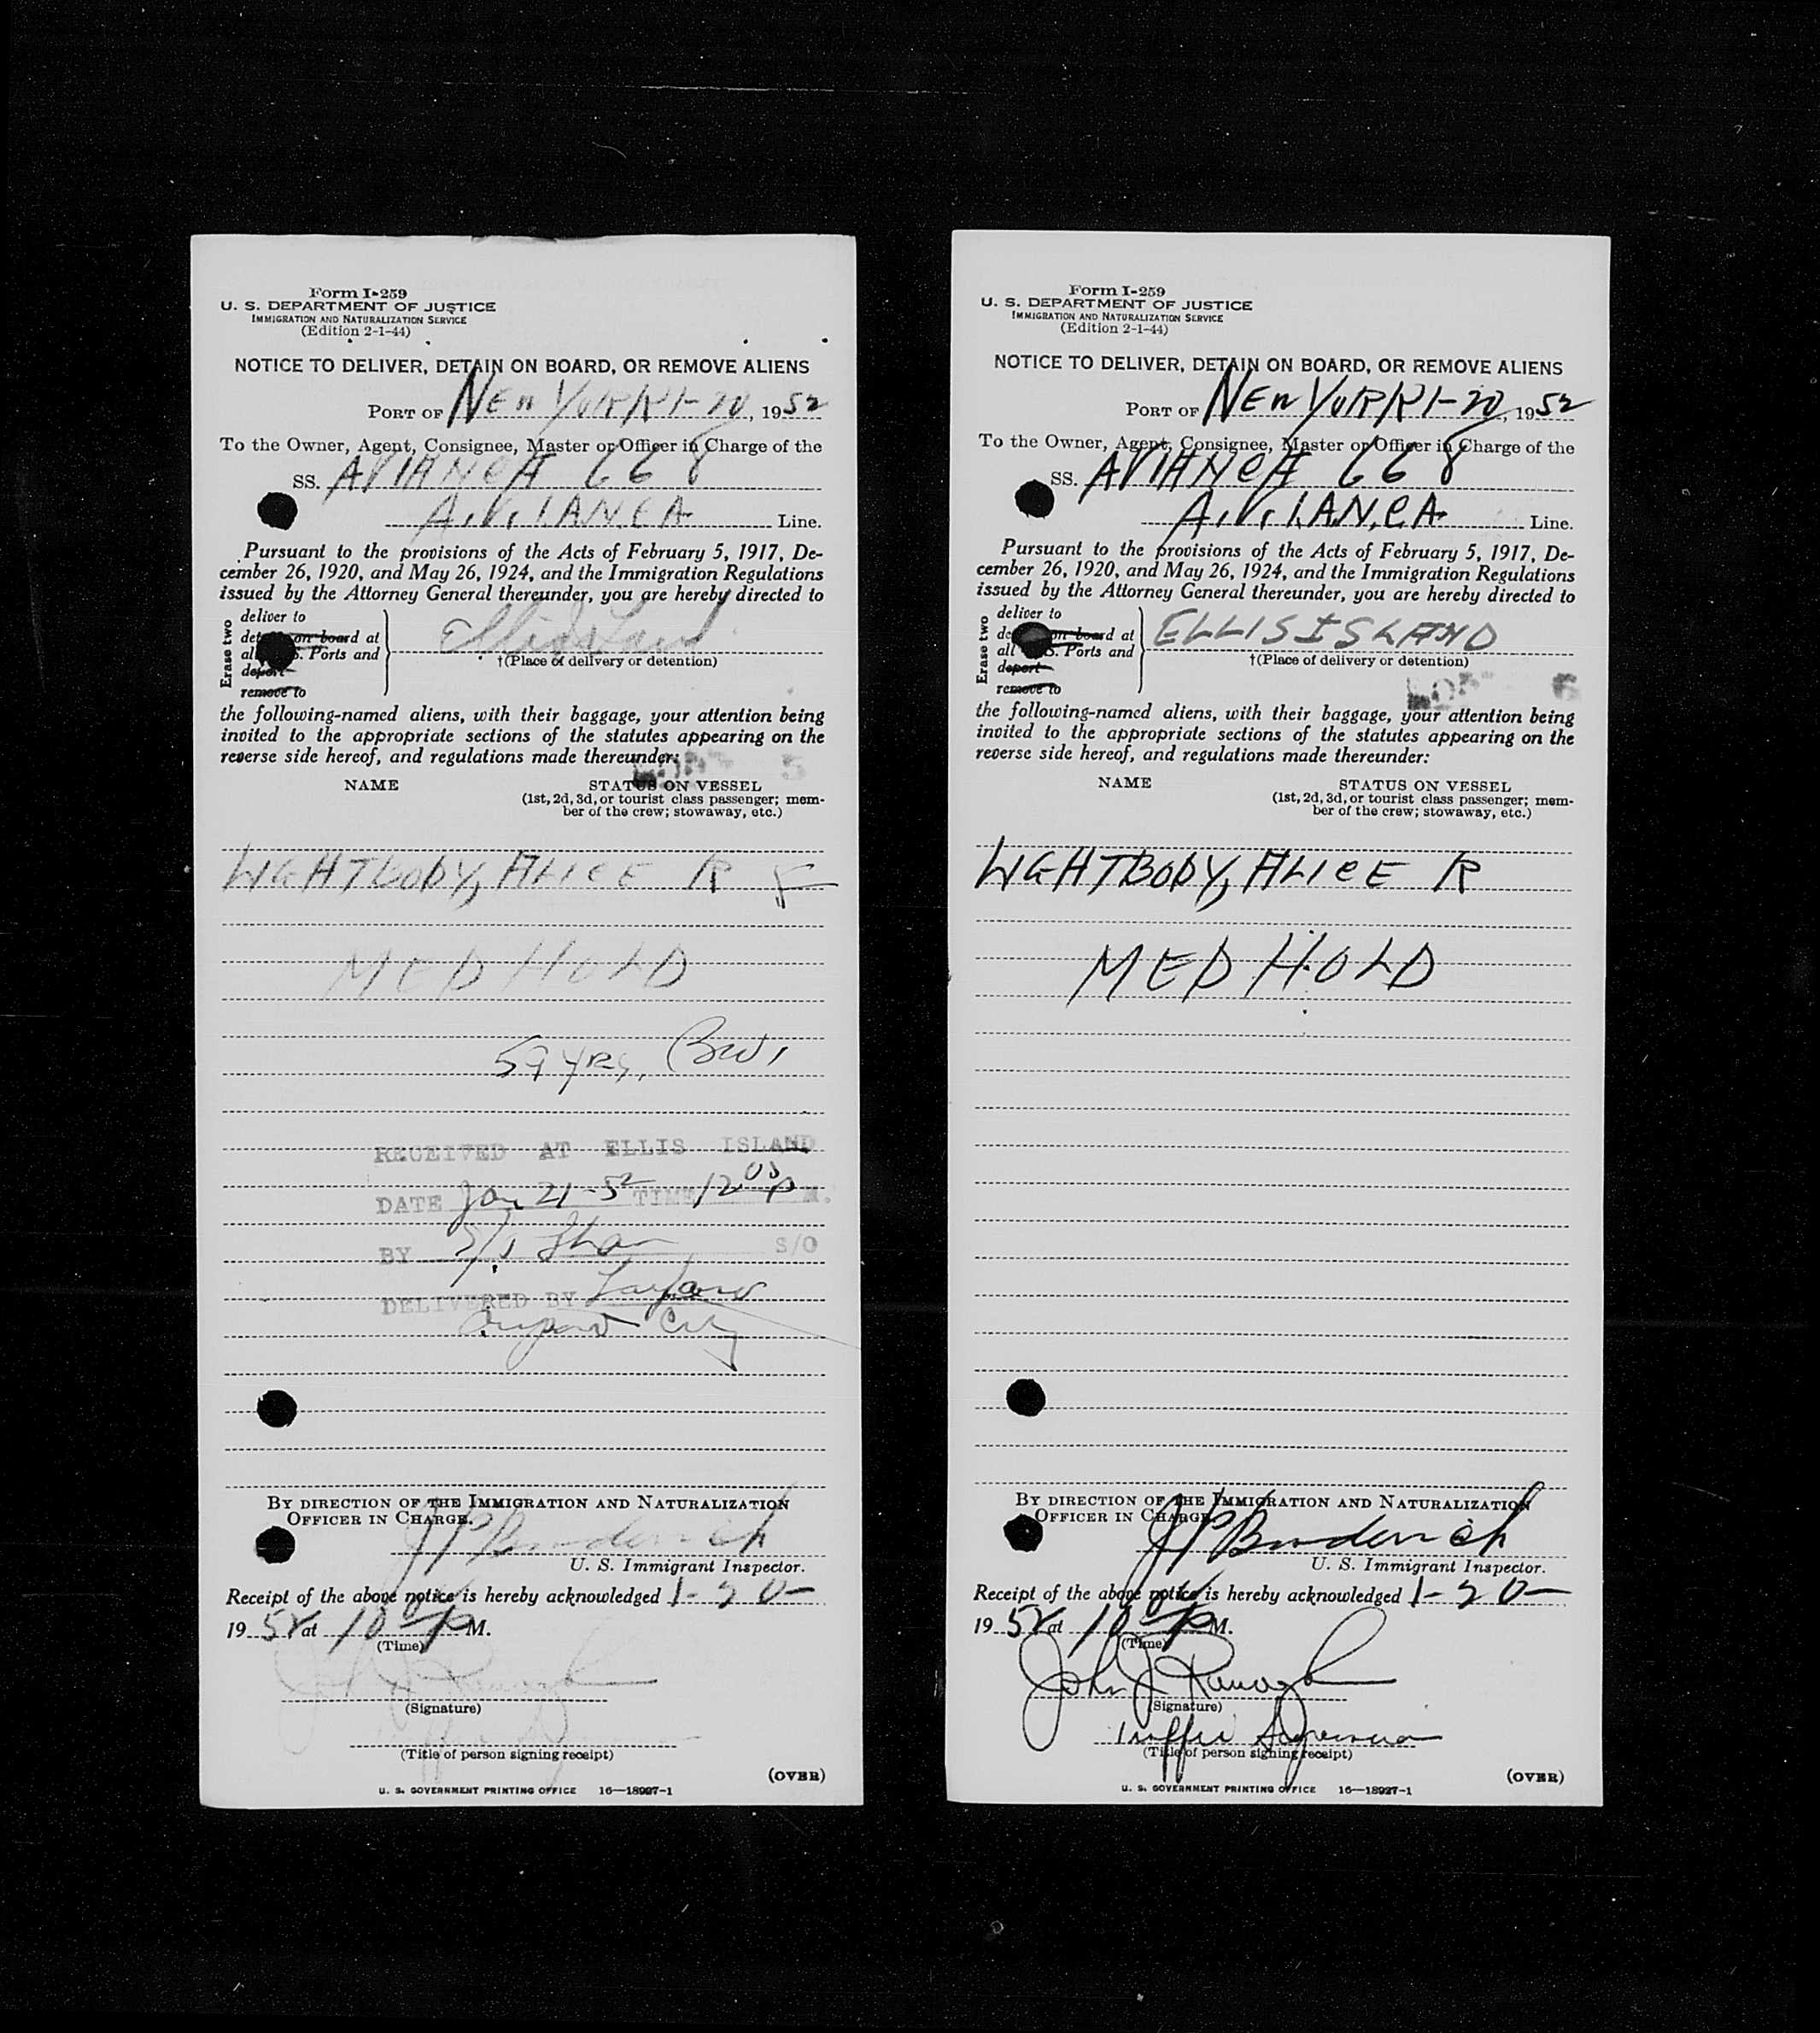 Form I-259
U. S. DEPARTMENT OF JUSTICE
IMMIGRATION AND NATURALIZATION SERVICE
(Edition 2-1-44)
NOTICE TO DELIVER, DETAIN ON BOARD, OR REMOVE ALIENS
PORT OF NEW YORK 1-20, 1952
To the Owner, Agent, Consignee, Master or Officer in Charge of the
SS. AVIANCA 668
A.V.I.A.N.C.A Line.
Pursuant to the provisions of the Acts of February 5, 1917, De-
cember 26, 1920, and May 26, 1924, and the Immigration Regulations
issued by the Attorney General thereunder, you are hereby directed to
Erase two
deliver to
on board at
Ports and
deport
remove to
Ellis Island
†(Place of delivery or detention)
the following-named aliens, with their baggage, your attention being
invited to the appropriate sections of the statutes appearing on the
reverse side hereof, and regulations made thereunder:
NAME STATUS ON VESSEL
(1st, 2d, 3d, or tourist class passenger; mem-
ber of the crew; stowaway, etc.)
LIGHTBODY, ALICE R
MED HOLD
59 yrs, BWI
RECEIVED AT ELLIS ISLAND
DATE Jan 21-52 TIME 12 00 P M.
BY S/O
DELIVERED BY
BY DIRECTION OF THE IMMIGRATION AND NATURALIZATION
OFFICER IN CHARGE.
U. S. Immigrant Inspector.
Receipt of the above notice is hereby acknowledged 1-20-
1952 at 10 P M.
(Time)
John J
(Signature)
(Title of person signing receipt)
(OVER)
U. S. GOVERNMENT PRINTING OFFICE 16—18927-1
Form I-259
U. S. DEPARTMENT OF JUSTICE
IMMIGRATION AND NATURALIZATION SERVICE
(Edition 2-1-44)
NOTICE TO DELIVER, DETAIN ON BOARD, OR REMOVE ALIENS
PORT OF NEW YORK 1-20, 1952
To the Owner, Agent, Consignee, Master or Officer in Charge of the
SS. AVIANCA 668
A.V.I.A.N.C.A Line.
Pursuant to the provisions of the Acts of February 5, 1917, De-
cember 26, 1920, and May 26, 1924, and the Immigration Regulations
issued by the Attorney General thereunder, you are hereby directed to
Erase two
deliver to
on board at
all Ports and
deport
remove to
ELLIS ISLAND
†(Place of delivery or detention)
the following-named aliens, with their baggage, your attention being
invited to the appropriate sections of the statutes appearing on the
reverse side hereof, and regulations made thereunder:
NAME STATUS ON VESSEL
(1st, 2d, 3d, or tourist class passenger; mem-
ber of the crew; stowaway, etc.)
LIGHTBODY, ALICE R
MED HOLD
BY DIRECTION OF THE IMMIGRATION AND NATURALIZATION
OFFICER IN CHARGE.
U. S. Immigrant Inspector.
Receipt of the above notice is hereby acknowledged 1-20-
1952 at 10 P M.
(Time)
John J
(Signature)
Traffic Supervisor
(Title of person signing receipt)
(OVER)
U. S. GOVERNMENT PRINTING OFFICE 16—18927-1